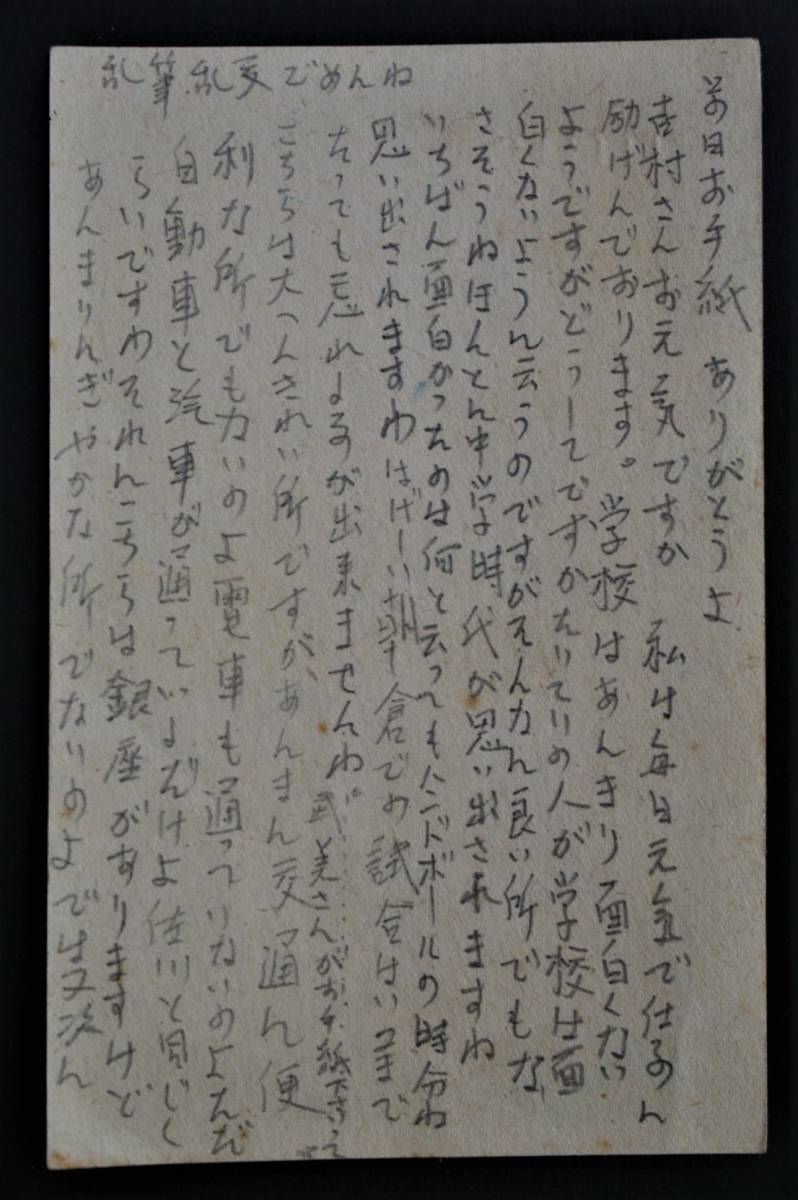 前日お手紙 ありがとうよ
吉村さんお元気ですか 私は毎日元気で仕事に
励げんでおります。学校はあんまり面白くない
ようですがどうしてですかたいていの人が学校は面
白くないように云うのですがそんなに良い所でもな
さそうねほんとに中学時代が思い出されますね
いちばん面白かったのは何と云ってもハンドボールの時分ね
思い出されますわはげしい朝倉での試合はいつまで
たっても忘れる事が出来ませんわ。
美さんがお手紙下さいって
こちらは大へんきれい所ですが、あんまに交通に便
利な所でもないのよ電車も通っていないのよただ
自動車と汽車が通っているだけよ佐川と同じく
らいですわそれにこちらは銀座がありますけど
あんまりんぎやかな所でないのよでは又次に
乱筆乱文ごめんね